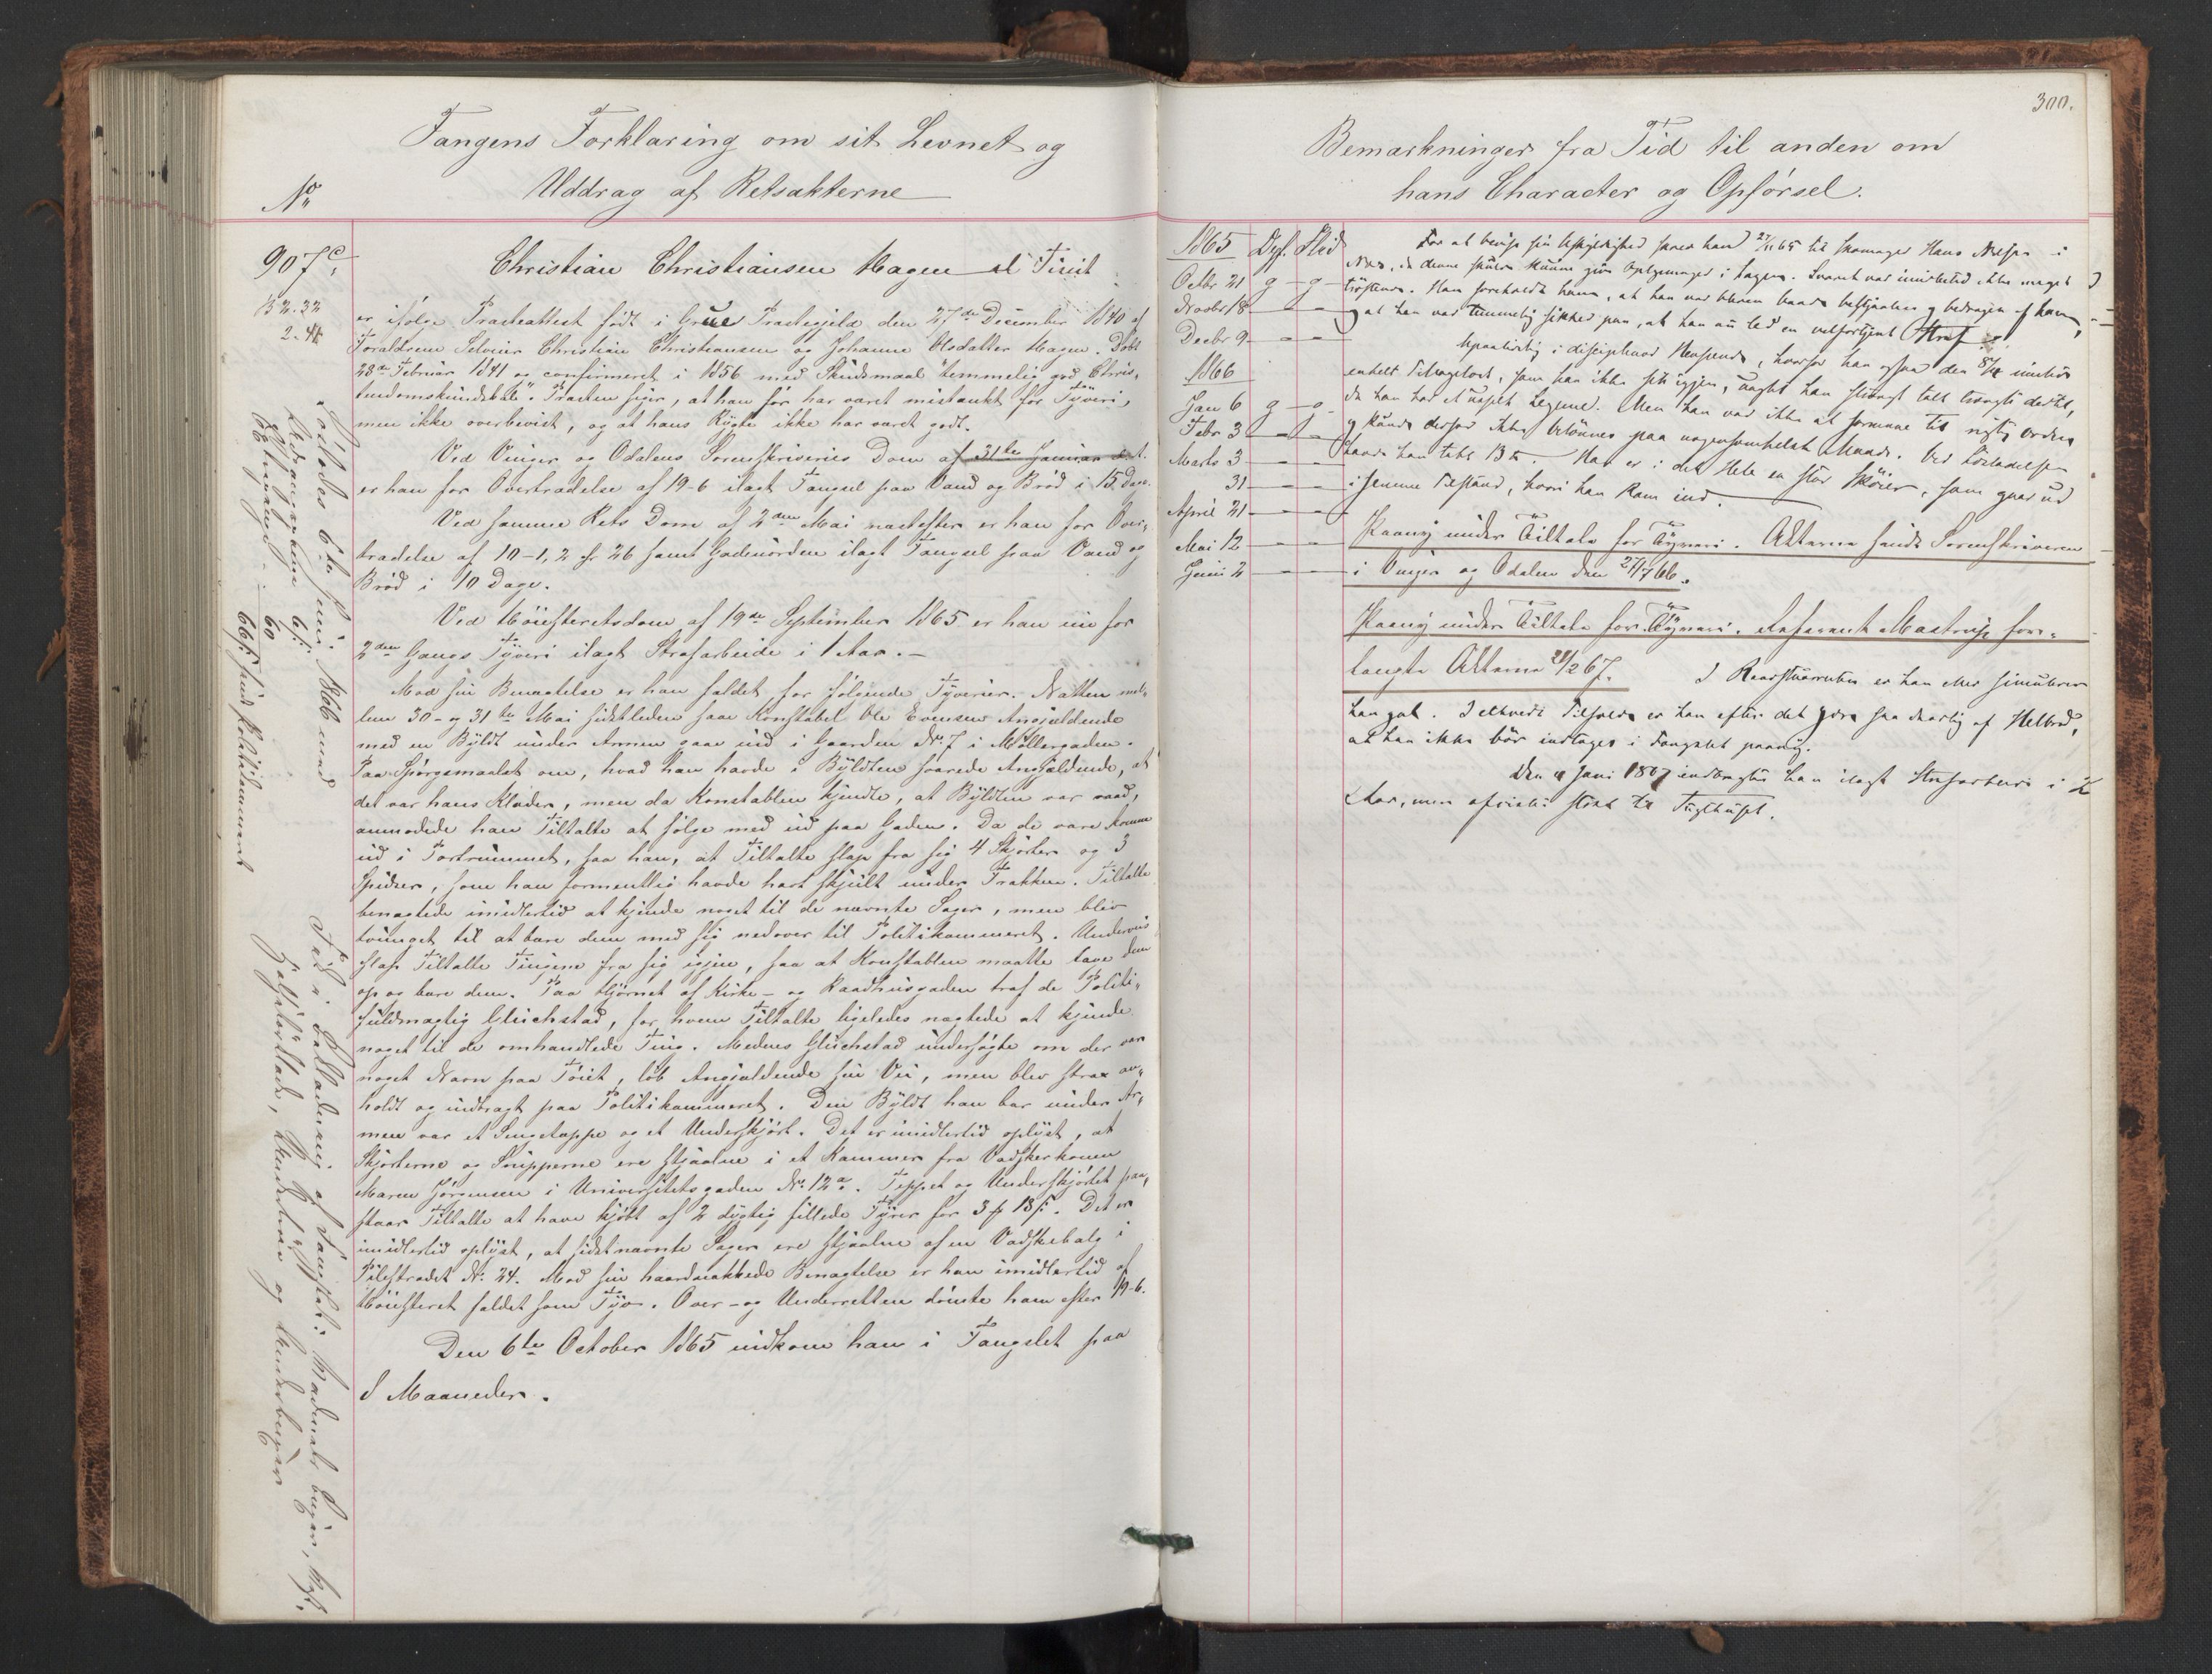 Fangens Forklaring om sit Levnet og
Uddrag af Retsakterne
No
907c.
B2.32
2.4
Christian Christiansen Hagen el Tinit
er ifølge Præsteattest født i Grue Præstegjeld den 27de December 1840 af
Forældrene Christian Christiansen og Johanne Olsdatter Hagen. Døbt
28de Februar 1841 og confirmeret i 1856 med Skudsmaal "temmelig god Chris,
tendomskundskab". Præsten siger, at han før har været mistænkt for Tyveri,
men ikke overbevist, og at hans Rygte ikke har været godt.
Ved Vinger og Odalens Sorenskriveries Dom af 31te Januar
er han for Overtrædelse af 19-6 ilagt Fængsel paa Vand og Brød i 15 Dage.
Ved samme Rets Dom af 2den Mai næstefter er han for Over,
trædelse af 10-1, 2 26 samt Gadeuorden ilagt Fængsel paa Vand og
Brød i 10 Dage.
Ved Høiesteretsdom af 19de September 1865 er han nu for
2den Gangs Tyveri ilagt Strafarbeide i 1 Aar.-
Mod sin Benægtelse er han fældet for følgende Tyverier. Natten mel,
lem 30- og 31te Mai sidstleden saae Konstabel Ole Evensen Angjældende
med en Byldt under Armen gaae ind i Gaarden No. 7 i Møllergaden.
Paa Spørgsmaalet om, hvad han havde i Byldten svarede Angjældende, at
det var hans Klæder, men da Konstablen kjendte, at Byldten var vaad,
anmodede han Tiltalte at følge med ud paa Gaden. Da de vare komne
ud i Portrummet, saa han, at Tiltalte slap fra sig 4 Skjorter og 3
Snipper, som han formentlig havde havt skjult under Frakken. Tiltalte
benægtede imidlertid at kjende noget til de nævnte Sager, men blev
tvunget til at bære dem med sig nedover til Politikammeret. Underveis
slap Tiltalte Tingene fra sig igjen, saa at Konstablen maatte tage dem
op og bære dem. Paa Hjørnet af Kirke- og Raadhusgaden traf de Politi,
fuldmægtig Gluchstad, for hvem Tiltalte ligeledes nægtede at kjende
noget til de omhandlede Ting. Medens Gluchstad undersøgte om der var
noget Navn paa Tøiet, løb Angjældende sin Vei, men blev strax an,
holdt og indbragt paa Politikammeret. Den Byldt han bar under Ar,
men var et Sengetæppe og et Underskjørt. Det er imidlertid oplyst, at
Skjorterne og Snipperne ere stjaalne i et Kammer fra Vadskerkonen
Maren Jørgensen i Universitetsgaden No. 12a. Teppet og Underskjørtet paa,
staar Tiltalte at have kjøbt af 2 dygtig fillede Fyrer for 3 18. Det er
imidlertid oplyst, at sidstnævnte Sager ere stjaalne af en Vadskebalg i
Pilestrædet No. 24. Mod sin haardnakkede Benægtelse er han imidlertid af
Høiesteret fældet som Tyv. Over- og Underretten dømte ham efter 19-6.
Den 6te October 1865 indkom han i Fængslet paa
8 Maaneder.
Løslodes 6te Juni 1866 med
66 sendt Politikammeret
300.
Bemærkninger fra Tid til anden om
hans Character og Opførsel.
1865 Opf. Flid
Octbr 21 g g
Novbr 18 - -
Decbr 9 - -
1866
Jan 6 g g
Febr 3 - -
Marts 3 - -
31 - -
April 21 - -
Mai 12 - -
Juni 2 - -
For at bevise sin Uskyldighed skrev han 27/11 65 til Skomager Hans Nilsen i
Nes, da denne skulde kunne give Oplysninger i Sagen. Svaret var imidlertid ikke meget
trøstende. Han foreholdt ham, at han var bleven baade bestjaalen og bedragen af ham,
og at han var temmelig sikker paa, at han nu led en velfortjent Straf
Upaalidelig i disciplinær Henseende, hvorfor han ogsaa den
enkelt Tillægskost, som han ikke fik igjen, uagtet han strengt talt trængte dertil,
da han har et Legeme. Men han var ikke at formane til rigtig Orden
og kunde derfor ikke belønnes paa nogensomhelst Maade. Ved Løsladelsen
havde han tabt 13 . Han er i det Hele en stor Skøier, som gaar ud
i samme Tilstand, hvori han kom ind.
Paany under Tiltale for Tyveri. Akterne sendt Sorenskriveren
i Vinger og Odalen den 27/7 66.
Paany under Tiltale for Tyveri. Referent Mastrup for-
langte Akterne 21/2 67.
han gal. I ethvert Tilfælde er han efter det saa daarlig af Helbred,
at han ikke bør indtages i Fængslet paany.
Den 4 Juni 1867 indbragtes han ilagt Strafarbeide i 2
Aar, men afvistes strax til Tugthuset.